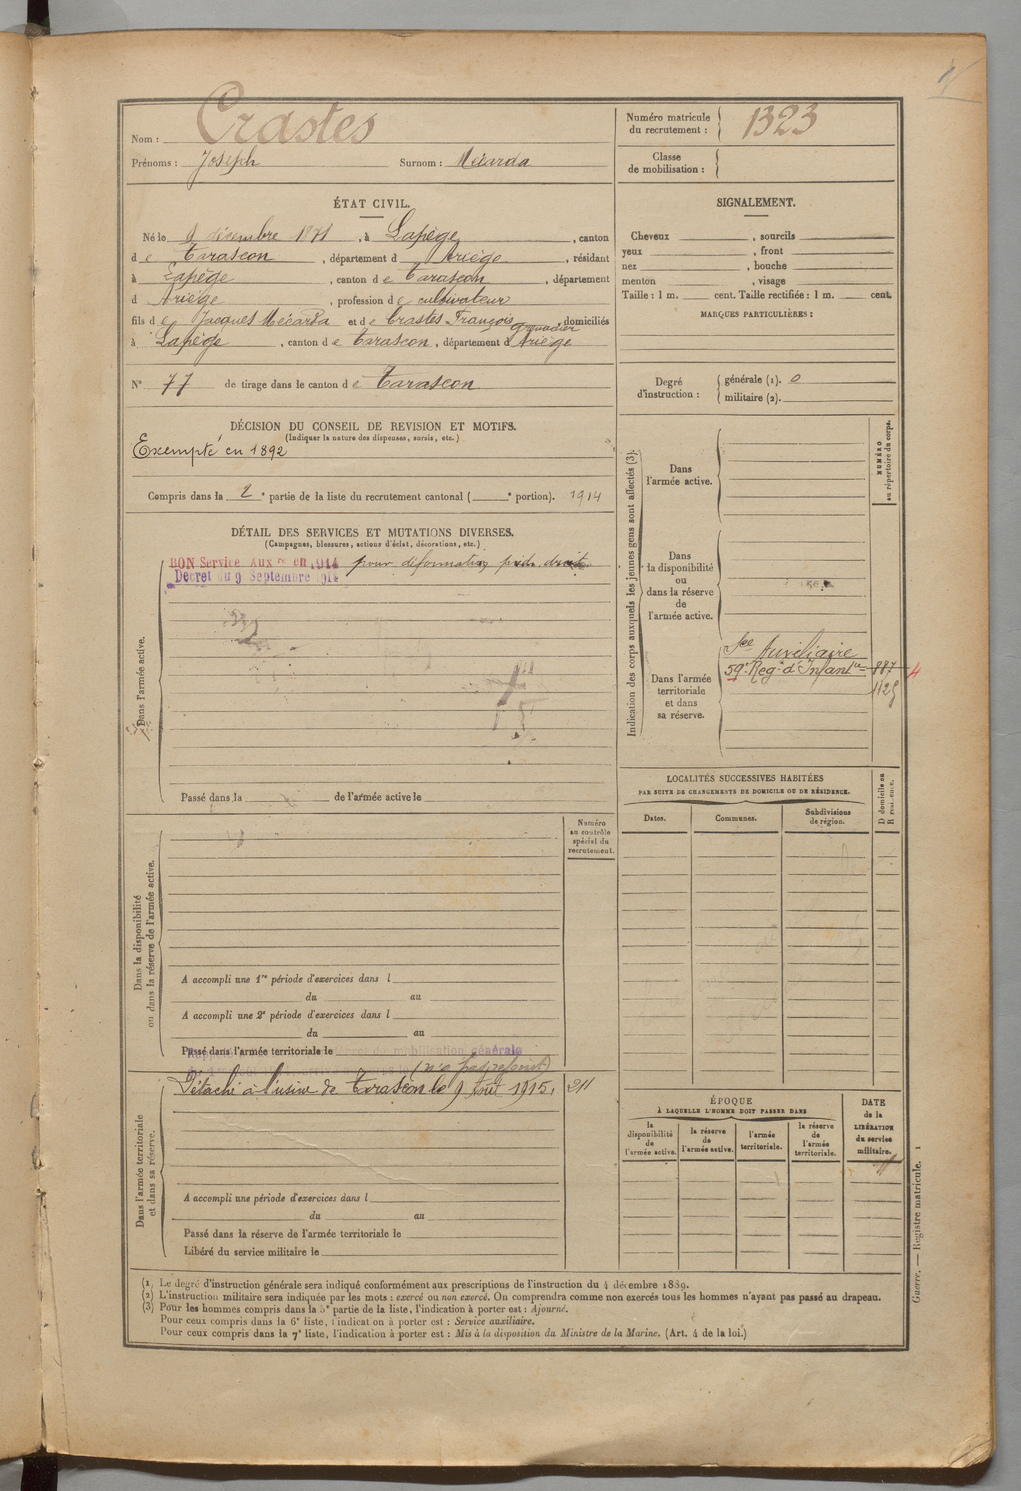 Nom : Crastes
Prénoms : Joseph Surnom : Mécarda
Numéro matricule du recrutement : 1323
Classe de mobilisation :
ÉTAT CIVIL.
Né le 9 décembre 1871, à Lapège, canton
de Tarascon, département d Ariège, résidant
à Lapège, canton de Tarascon, département
d Ariège, profession de cultivateur
fils de Jacques Mécarda et de Crastes Françoise, domiciliés
à Lapège, canton de Tarascon, département d Ariège
N° 77 de tirage dans le canton de Tarascon
DÉCISION DU CONSEIL DE REVISION ET MOTIFS.
(Indiquer la nature des dispenses, sursis, etc.)
Exempté en 1892
Compris dans la 2e partie de la liste du recrutement cantonal ( e portion). 1914
DÉTAIL DES SERVICES ET MUTATIONS DIVERSES.
(Campagnes, blessures, actions d'éclat, décorations, etc.)
BON Service Aux re en 1914 pour déformation pieds droit
Décret du 9 Septembre 1914
Dans l'armée active.
Passé dans la de l'armée active le
Numéro au contrôle spécial du recrutement.
Dans la disponibilité ou dans la réserve de l'armée active.
A accompli une 1re période d'exercices dans l
du au
A accompli une 2e période d'exercices dans l
du au
Passé dans l'armée territoriale le
mobilisation générale
Détaché à l'usine de Tarascon le 9 Août 1915. 211
Dans l'armée territoriale et dans sa réserve.
A accompli une période d'exercices dans l
du au
Passé dans la réserve de l'armée territoriale le
Libéré du service militaire le
SIGNALEMENT.
Cheveux , sourcils
yeux , front
nez , bouche
menton , visage
Taille : 1 m. cent. Taille rectifiée : 1 m. cent.
MARQUES PARTICULIÈRES :
Degré d'instruction : générale (1). 0
militaire (2).
Indication des corps auxquels les jeunes gens sont affectés (3).
NUMÉRO au répertoire du corps.
Dans l'armée active.
Dans la disponibilité ou dans la réserve de l'armée active.
Dans l'armée territoriale et dans sa réserve.
Sce Auxiliaire
59e Regt d'Infantie 887
1125
LOCALITÉS SUCCESSIVES HABITÉES
PAR SUITE DE CHANGEMENTS DE DOMICILE OU DE RÉSIDENCE.
Dates. Communes. Subdivisions de région. D domicile ou R résidence.
ÉPOQUE
À LAQUELLE L'HOMME DOIT PASSER DANS
la disponibilité de l'armée active. la réserve de l'armée active. l'armée territoriale. la réserve de l'armée territoriale.
DATE de la LIBÉRATION du service militaire.
(1) Le degré d'instruction générale sera indiqué conformément aux prescriptions de l'instruction du 4 décembre 1889.
(2) L'instruction militaire sera indiquée par les mots : exercé ou non exercé. On comprendra comme non exercés tous les hommes n'ayant pas passé au drapeau.
(3) Pour les hommes compris dans la 5e partie de la liste, l'indication à porter est : Ajourné.
Pour ceux compris dans la 6e liste, l'indication à porter est : Service auxiliaire.
Pour ceux compris dans la 7e liste, l'indication à porter est : Mis à la disposition du Ministre de la Marine. (Art. 4 de la loi.)
Guerre. — Registre matricule. 1